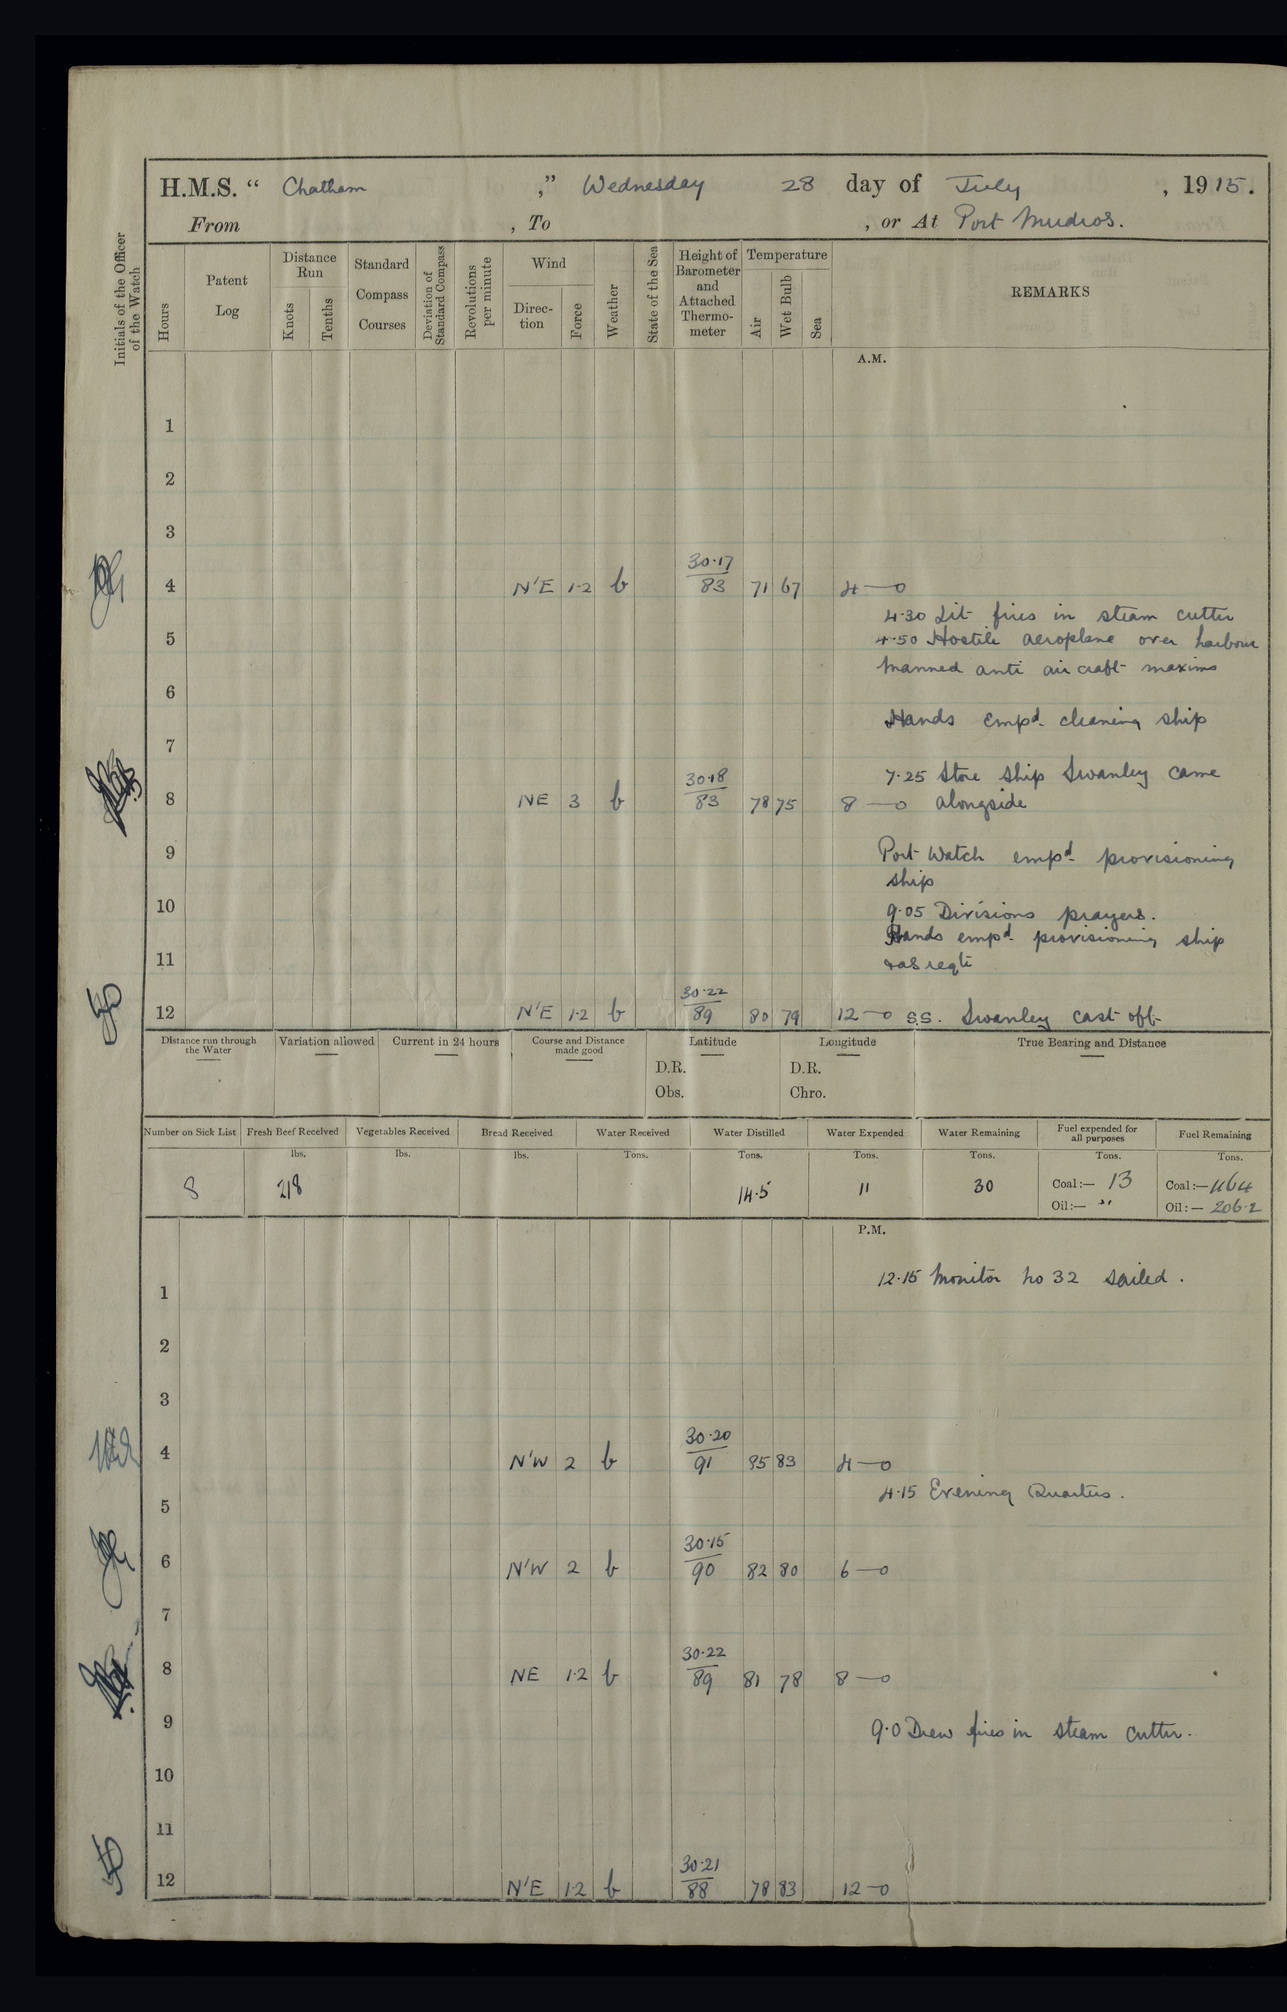 H.M.S. “ Chatham ,” Wednesday 28 day of July , 1915.
From , To , or At Port Mudros.
Initials of the Officer of the Watch
Hours
Patent Log
Distance Run
Knots
Tenths
Standard Compass Courses
Deviation of Standard Compass
Revolutions per minute
Wind
Direc-tion
Force
Weather
State of the Sea
Height of Barometer and Attached Thermo-meter
Temperature
Air
Wet Bulb
Sea
REMARKS
A.M.
1
2
3
4 N'E 1·2 b 30·17 / 83 71 67 4—0
4·30 Lit fires in steam cutter
5 4·50 Hostile aeroplane over harbour
Manned anti aircraft maxims
6
Hands empd. cleaning ship
7
7·25 Store Ship Swanley came
8 NE 3 b 30·18 / 83 78 75 8—0 alongside
9 Port Watch empd. provisioning
ship
10 9·05 Divisions prayers.
Hands empd. provisioning ship
11 & as reqte
12 N'E 1·2 b 30·22 / 89 80 79 12—0 S.S. Swanley cast off
Distance run through the Water
Variation allowed
Current in 24 hours
Course and Distance made good
Latitude
D.R.
Obs.
Longitude
D.R.
Chro.
True Bearing and Distance
Number on Sick List Fresh Beef Received Vegetables Received Bread Received Water Received Water Distilled Water Expended Water Remaining Fuel expended for all purposes Fuel Remaining
lbs. lbs. lbs. Tons. Tons. Tons. Tons. Tons. Tons.
8 218 14·5 11 30 Coal:— 13 Coal:— 1164
Oil:— " Oil:— 206·2
P.M.
12·15 Monitor No 32 sailed.
1
2
3
4 N'W 2 b 30·20 / 91 85 83 4—0
4·15 Evening Quarters.
5
6 N'W 2 b 30·15 / 90 82 80 6—0
7
8 NE 1·2 b 30·22 / 89 81 78 8—0
9 9·0 Drew fires in steam cutter.
10
11
12 N'E 1·2 b 30·21 / 88 78 83 12—0